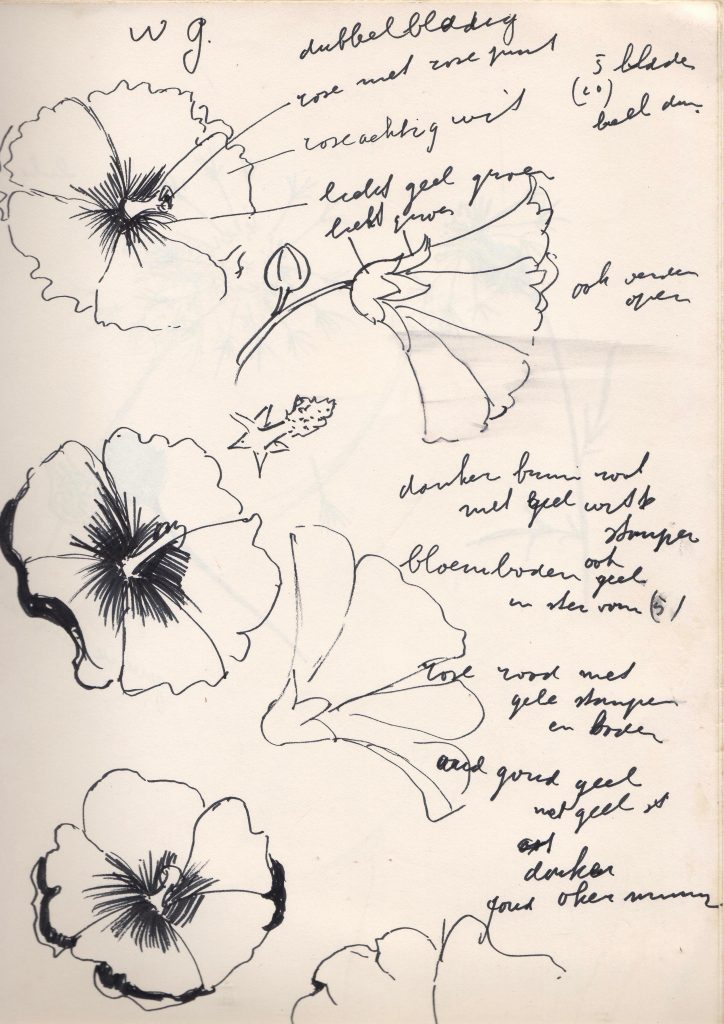 w g.
dubbelbladig
rose met rose punt
roseachtig wit
licht geel groen
licht groen
5 blade
(10)
ook
open
donker bruin rood
met geel witte
stamper
bloembodem ook
geel
in ster vorm (5)
rose rood met
gele stamper
en bodem
oud goud geel
met geel
donker
goud oker